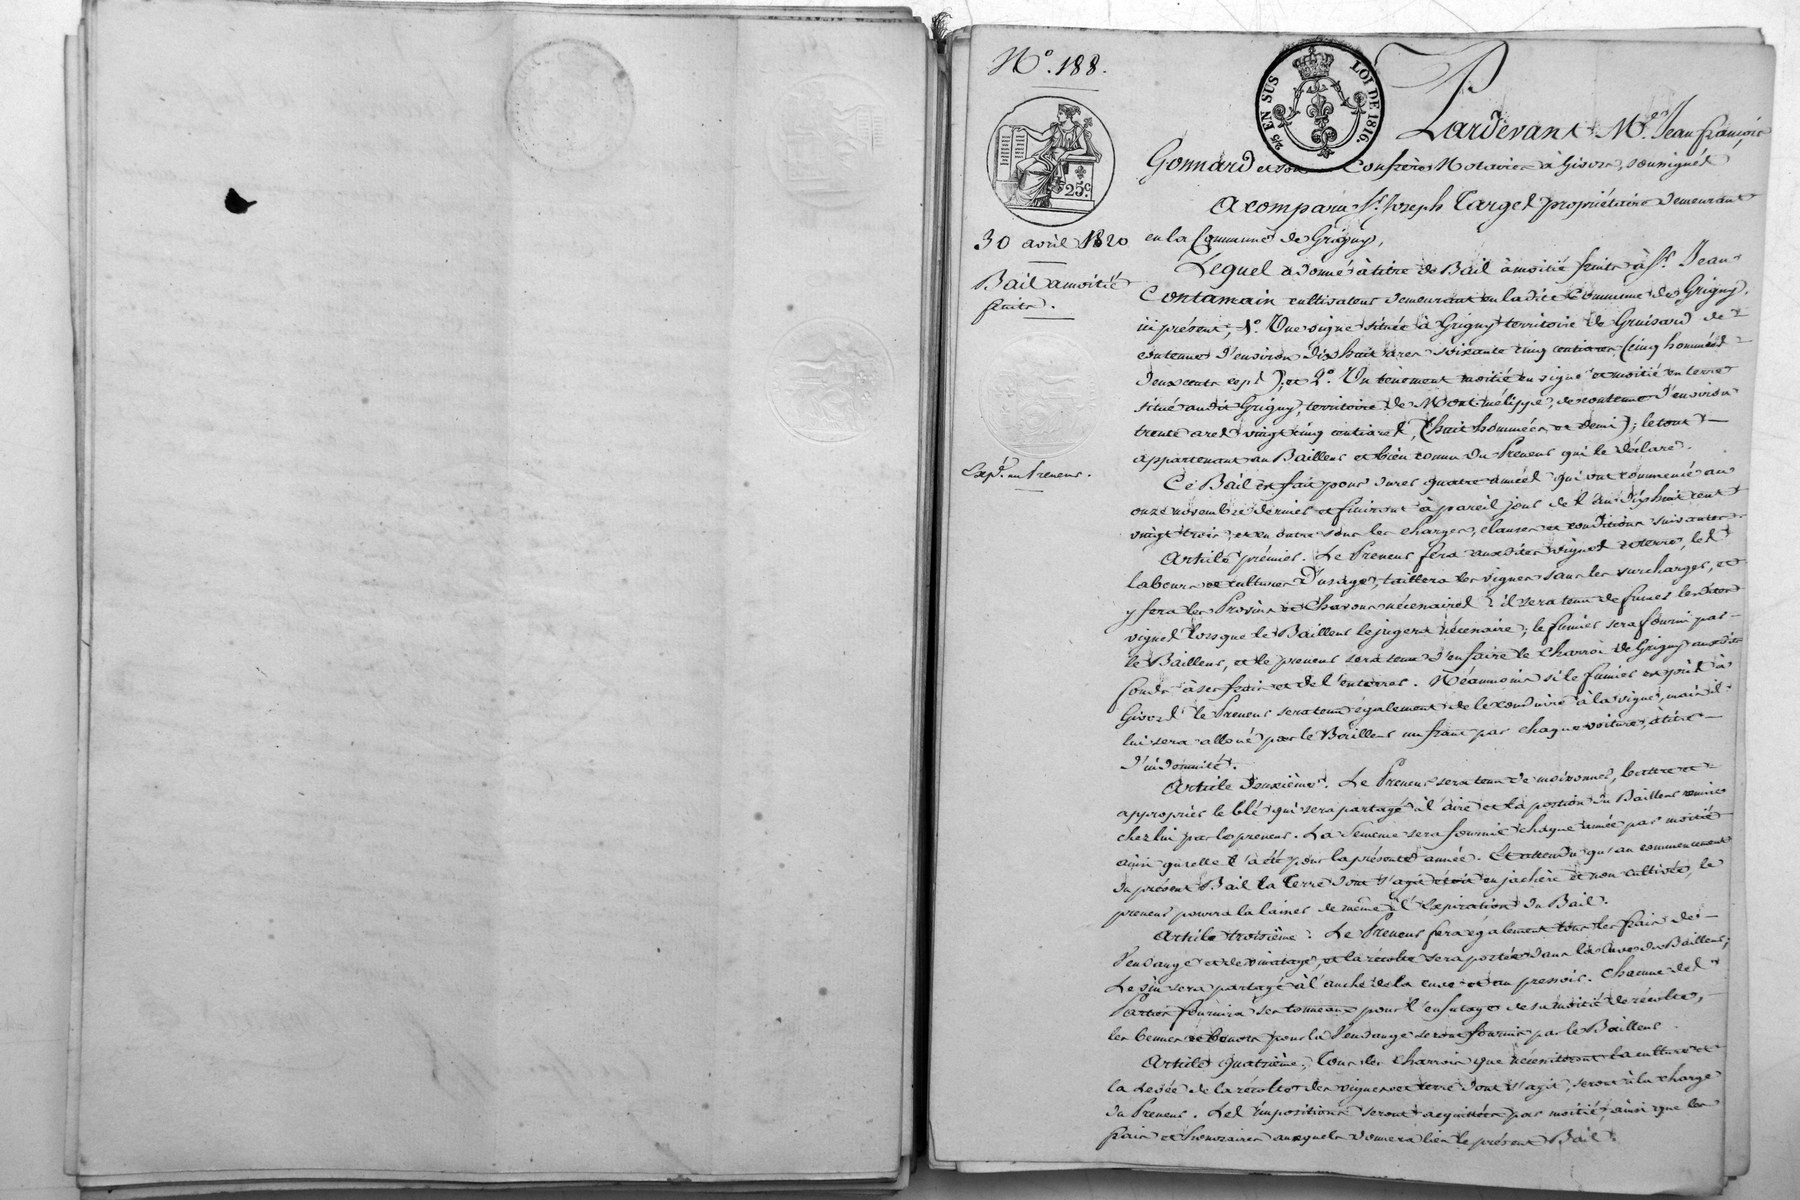 N.o 188.
2/5 EN SUS LOI DE 1816.
25.c
30 avril 1820
Bail à moitié
fruits.
Exp.on au Preneur.
Pardevant M.e Jean françois
Gonnard et son Confrère Notaires à Givors, soussignés
A comparu S.r Joseph Targe propriétaire demeurant
en la Commune de Grigny,
Lequel a donné à titre de Bail à moitié fruits à S.r Jean
Contamain cultivateur demeurant en la dite Commune de Grigny,
ici présent, 1.o Une vigne située à Grigny territoire de de
contenue d'environ dix huit ares soixante cinq centiares (cinq hommées
deux cents sept); et 2.o Un tènement moitié en vigne et moitié en terre
situé audit Grigny, territoire de de contenue d'environ
trente ares vingt cinq centiares, (huit hommées et demi); le tout
appartenant au Bailleur et bien connu du Preneur qui le déclare.
Ce Bail est fait pour durer quatre années qui ont commencé au
onze novembre dernier et finiront à pareil jour de l'an dix huit cent
vingt trois, et en outre sous les charges, clauses et conditions suivantes.
Article premier. Le Preneur fera aux dites vignes et terre, les
labours et cultures d'usage, taillera les vignes sans les surcharger, et
y fera les Provins et Chavons nécessaires; il sera tenu de fumer les dites
vignes lorsque le Bailleur le jugera nécessaire; le fumier sera fourni par
le Bailleur, et le preneur sera tenu d'en faire le charroi de Grigny auxdits
fonds à ses frais et de l'enterrer. Néanmoins si le fumier est pris à
Givors le Preneur sera tenu également de le conduire à la vigne, mais il
lui sera alloué par le Bailleur un franc par chaque voiture, à titre
d'indemnité.
Article deuxième. Le Preneur sera tenu de moissonner, battre et
approprier le blé qui sera partagé à l'aire et la portion du Bailleur remise
chez lui par le preneur. La semence sera fournie chaque année par moitié
ainsi qu'elle l'a été pour la présente année. Et attendu qu'au commencement
du présent Bail la terre dont s'agit étoit en jachère et non cultivée, le
preneur pourra la laisser de même à l'expiration du Bail.
Article troisième. Le Preneur fera également tous les frais de
Vendange et de vinatage, et la récolte sera portée dans la cuve du Bailleur;
Le vin sera partagé à l'anche de la cuve et au pressoir. Chacune des
Parties fournira ses tonneaux pour l'enfutage de sa moitié de récolte,
les bennes et benots pour la Vendange seront fournis par le Bailleur.
Article quatrième. Tous les charrois que nécessiteront la culture et
la levée de la récolte des vignes et terre dont s'agit, seront à la charge
du Preneur. Les impositions seront acquittées par moitié, ainsi que les
frais et honoraires auxquels donnera lieu le présent Bail.